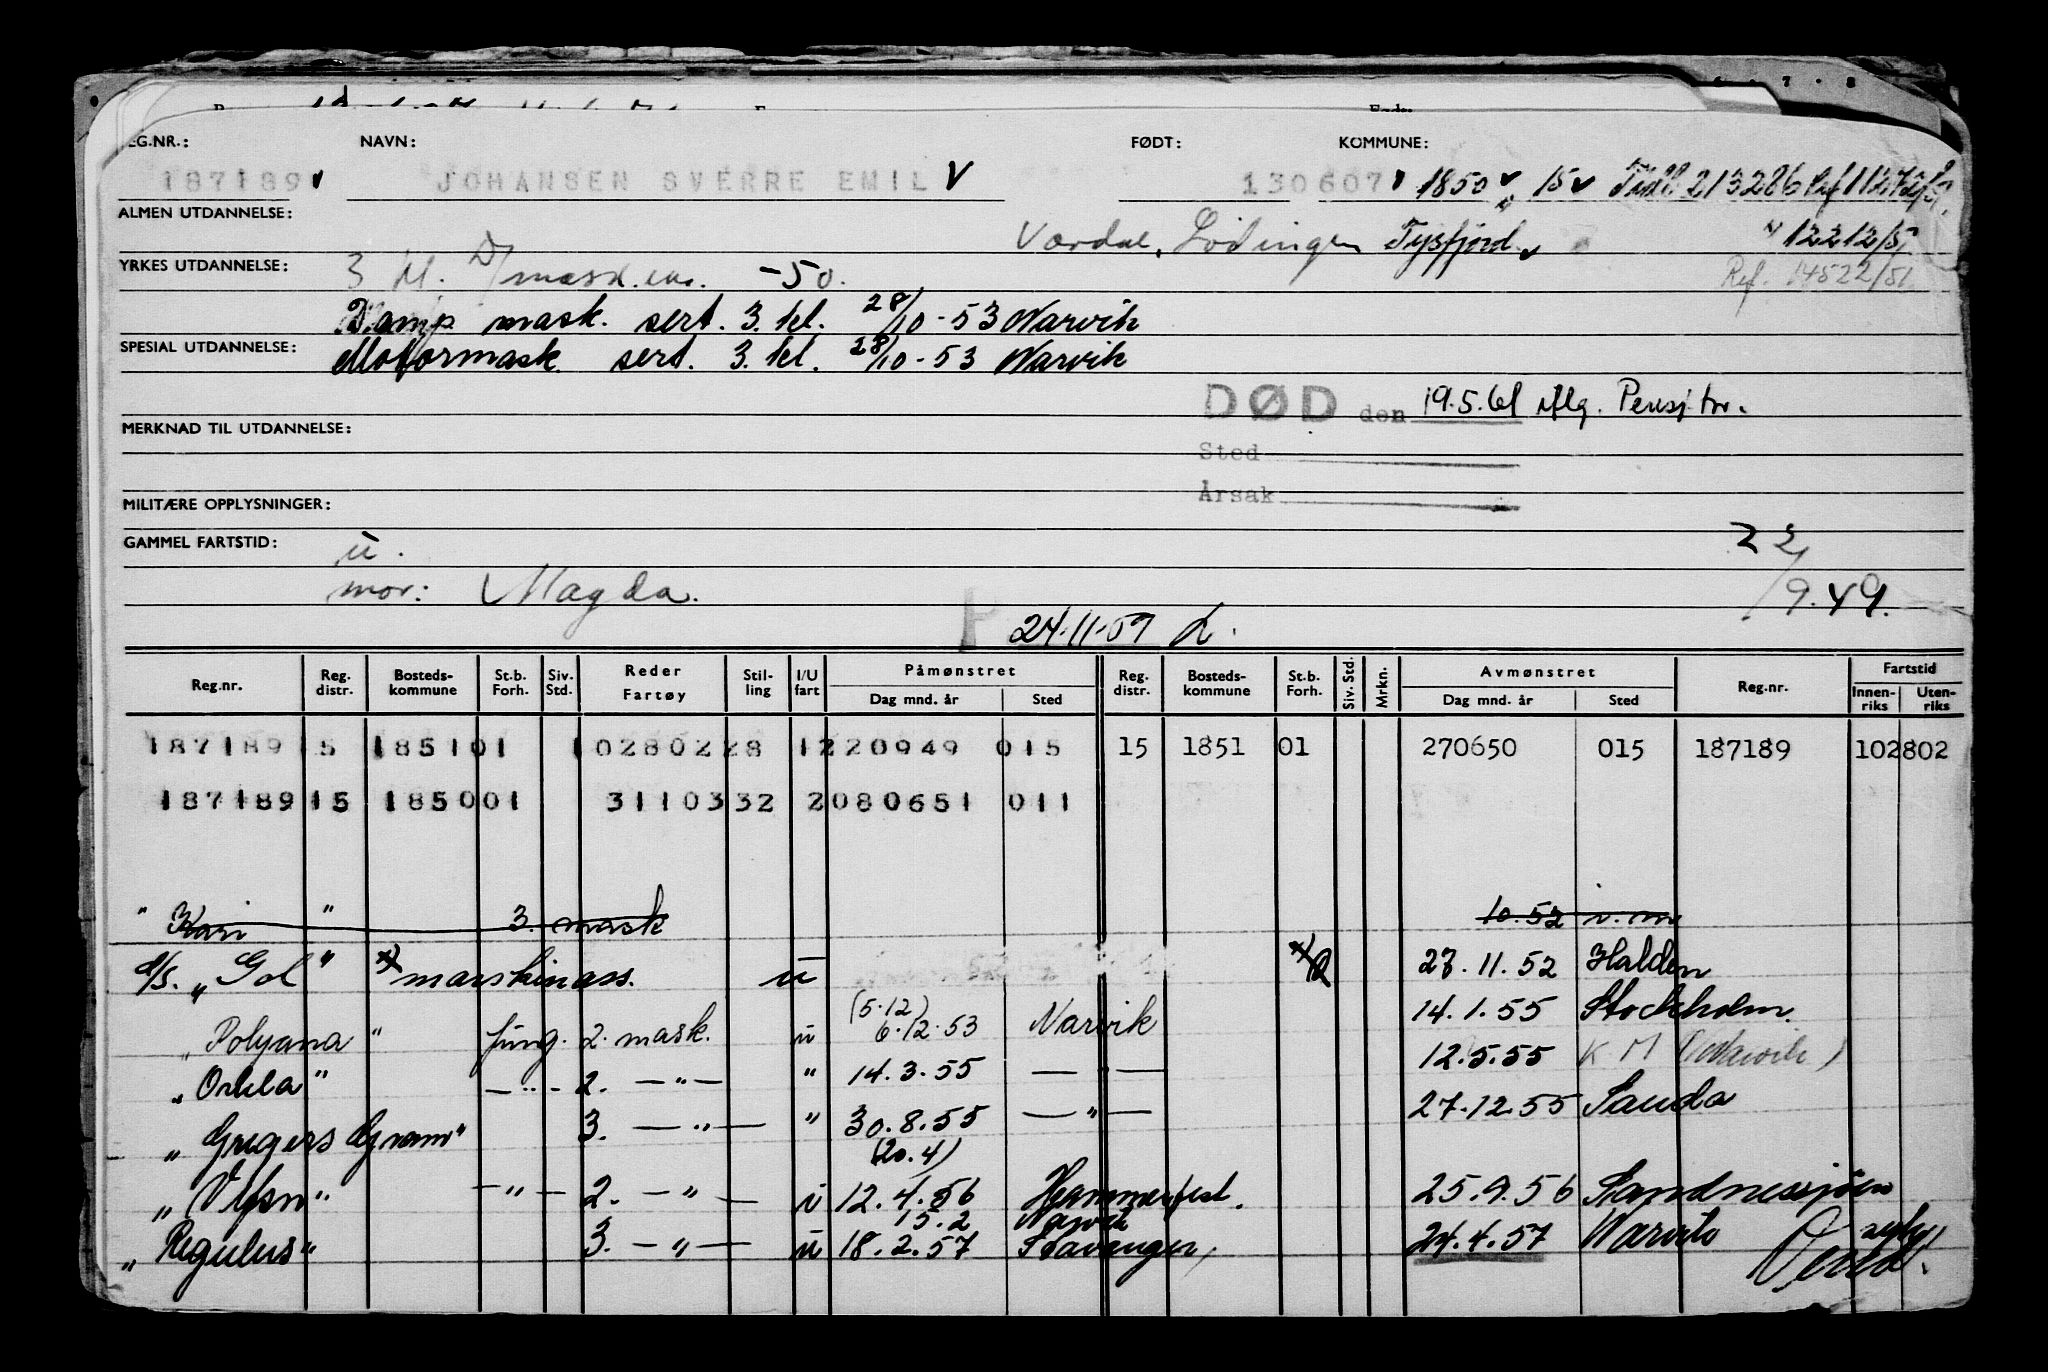 EG.NR.: NAVN: FØDT: KOMMUNE:
187189 v JOHANSEN SVERRE EMIL V 130607 v 1850 v 15 v Tidl. 213286
ALMEN UTDANNELSE: Lödingen Tysfjord v " 12212/51
YRKES UTDANNELSE: 3 kl. D/mask.eks. -50. Ref. 14522/51
Damp mask. sert. 3. kl. 28/10-53 Narvik
SPESIAL UTDANNELSE: Motormask. sert. 3. kl. 28/10-53 Narvik
DØD den 19.5.61 iflg. Pensj.tr.
MERKNAD TIL UTDANNELSE:
Sted
Årsak
MILITÆRE OPPLYSNINGER:
GAMMEL FARTSTID: ü. 22/9.49.
mor: Magda.
P 24.11.59 L.
Reg.nr. Reg. distr. Bosteds- kommune St.b. Forh. Siv. Std. Reder Fartøy Stil- ling I/U fart Påmønstret Dag mnd. år Sted Reg. distr. Bosteds- kommune St.b. Forh. Siv. Std. Mrkn. Avmønstret Dag mnd. år Sted Reg.nr. Fartstid Innen- riks Uten- riks
187189 15 1851 01 10280228 1 220949 015 15 1851 01 270650 015 187189 102802
187189 15 1850 01 3110332 2 080651 011
" Kari " 3. mask 10.52 i.m
d/s. "Gol" x) maskinass. ü x) 27.11.52 Halden
"Polyana" fung. 2. mask. ü (5.12) 6.12.53 Narvik 14.1.55 Stockholm.
"Orkla" —"— 2. —"— " 14.3.55 —"— 12.5.55 K M (Narvik)
"Gregers Gram" 3. —"— " 30.8.55 —"— 27.12.55 Sauda
"Vefsn" —"— 2. —"— i (20.4) 12.4.56 Hammerfest. 25.9.56 Sandnessjöen
"Regulus" 3. —"— ü 15.2 Narvik 18.2.57 Stavanger, 24.4.57 Narvik